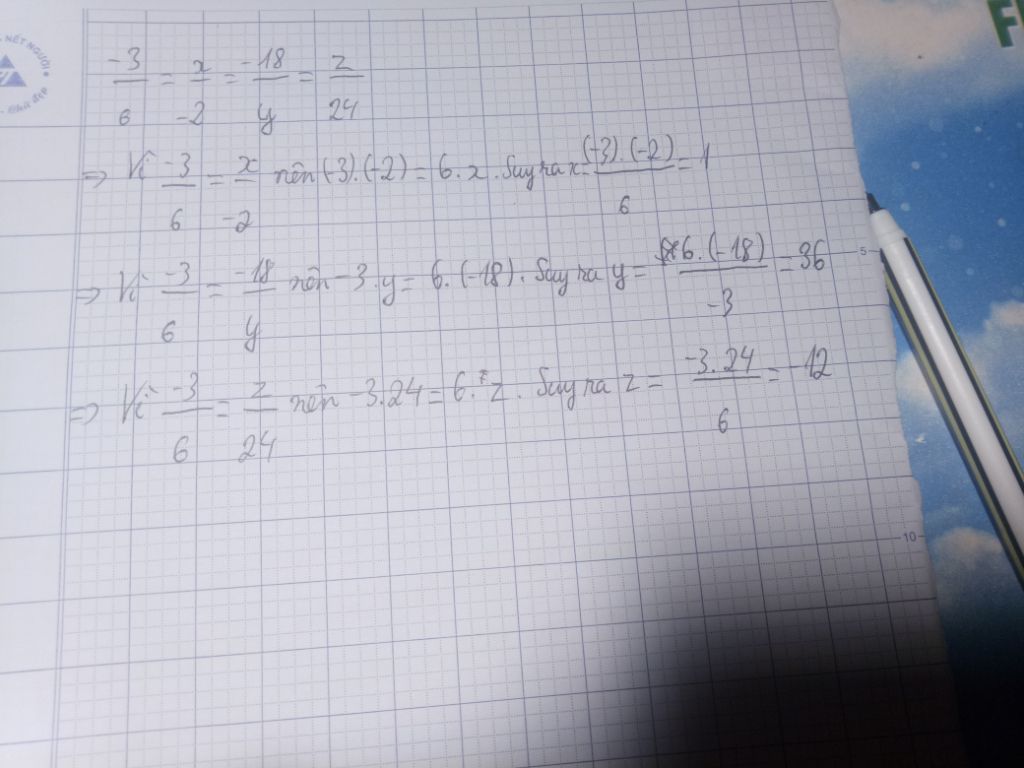 NÉT NGƯỜI
-3/6 = x/-2 = -18/y = z/24
=> Vì -3/6 = x/-2 nên (-3).(-2) = 6.x. Suy ra x = (-3).(-2)/6 = 1
=> Vì -3/6 = -18/y nên -3.y = 6.(-18). Suy ra y = 6.(-18)/-3 = 36
=> Vì -3/6 = z/24 nên -3.24 = 6.z. Suy ra z = -3.24/6 = -12
5
10
F